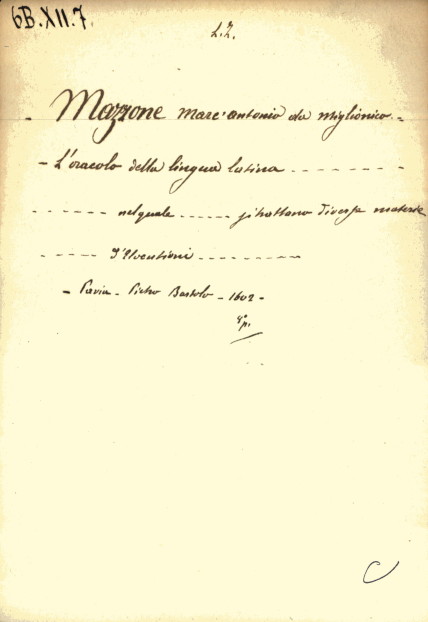 6B.XII.7.
L.Z.
- Mazzone Marc'antonio da miglionico -
- L'oracolo della lingua latina - - - - - - - -
- - - - - - nel quale - - - - - si trattano diverse materie
- - - - - d'Elocutioni - - - - - - - - -
- Pavia - Pietro Bartolo - 1602 -
C